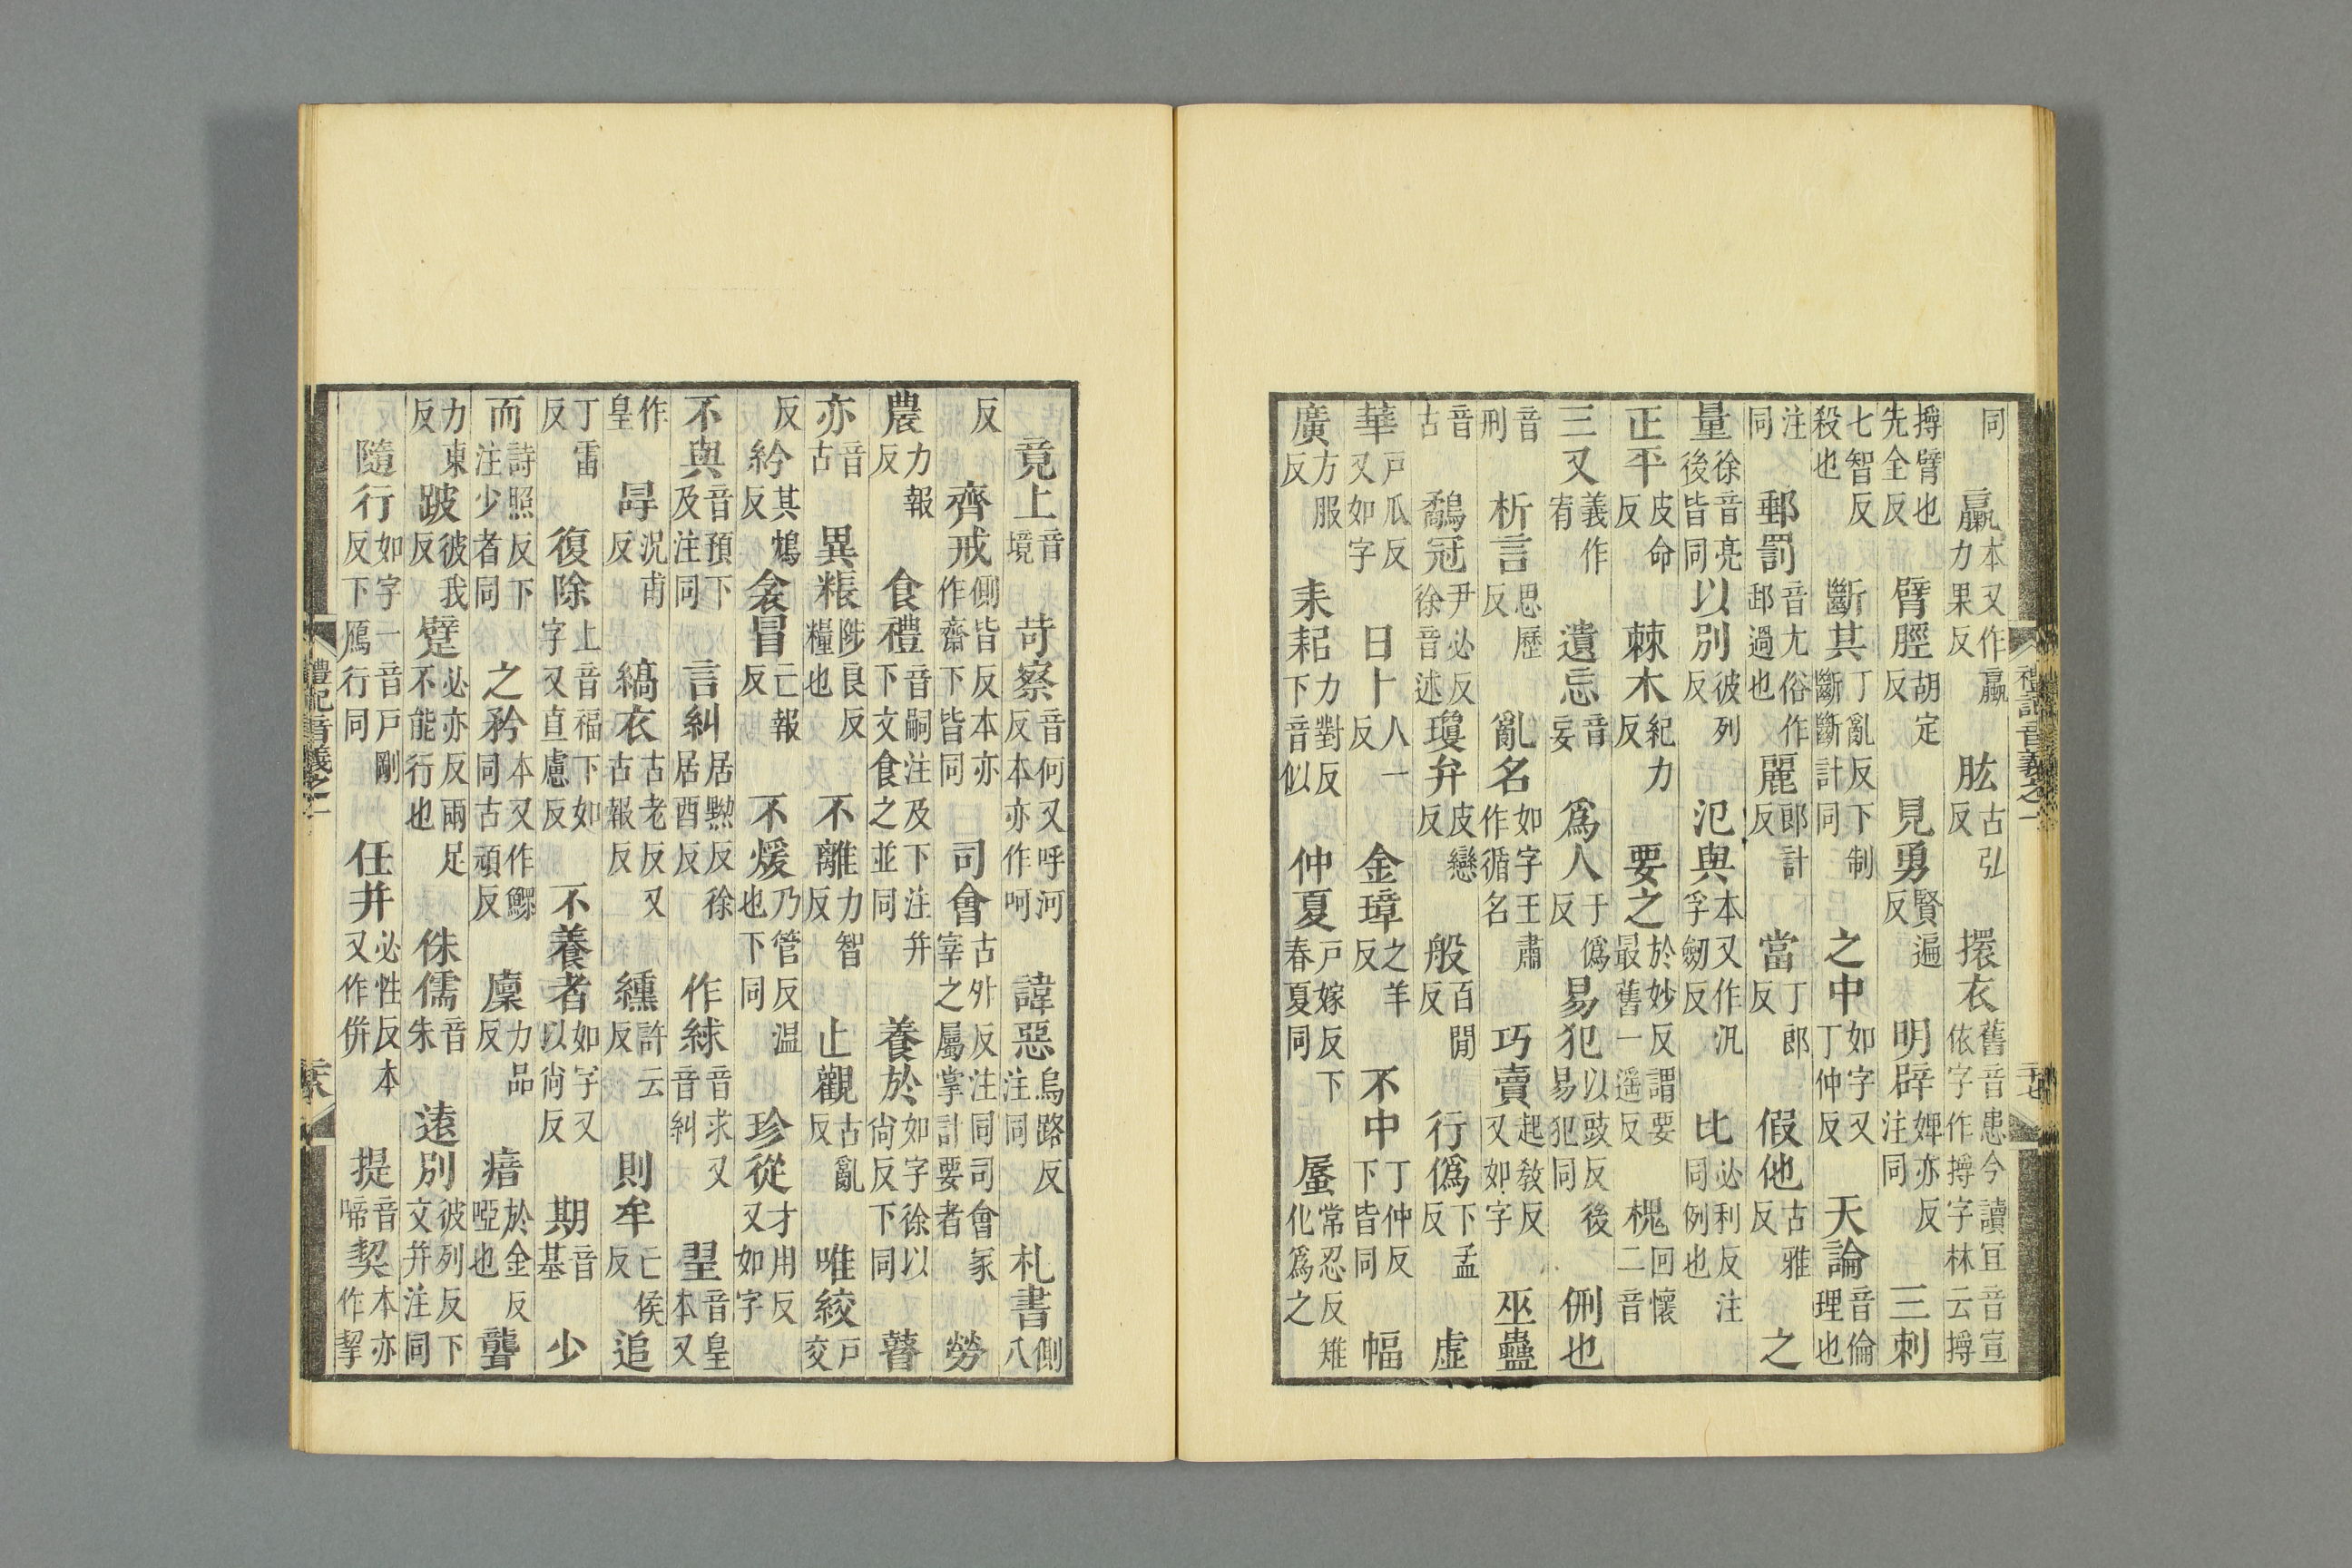 同臝本又作羸力果反肱古弘反擐衣舊音患今讀宜音宣依字作㩊字林云㩊
㩊臂也先全反臂脛胡定反見勇賢遍反明辟婢亦反注同三刺
七智反殺也斷其丁亂反下制斷斷計同之中如字又丁仲反天論音倫理也
注同郵罰音尤俗作邮過也麗郎計反當丁郎反假他古雅反之
量徐音亮後皆同以別彼列反氾與本又作汎孚劒反比必利反注同例也
正平皮命反棘木紀力反要之於妙反謂要最舊一遥反槐回懷二音
三又義作宥遺忘音妄爲人于僞反易犯以豉反後易犯同侀也
音刑析言思歷反亂名如字王肅作循名巧賣起敎反又如字巫蠱
音古鷸冠尹必反徐音述瓊弁皮戀反般百閒反行僞下孟反虛
華戸瓜反又如字日卜人一反金璋之羊反不中丁仲反下皆同幅
廣方服反耒耜力對反下音似仲夏戸嫁反下春夏同蜃常忍反雉化爲之
禮記音義之一
二十七
竟上音境苛察音何又呼河反本亦作呵諱惡烏路反注同札書側八
反齊戒側皆反本亦作齋下皆同司會古外反注同司會冢宰之屬掌計要者勞
農力報反食禮音嗣注及下注并下文食之並同養於如字徐以尙反下同瞽
亦音古異粻陟良反糧也不離力智反止觀古亂反唯絞戸交
反紟其鴆反衾冒亡報反不煖乃管反温也下同珍從才用反又如字
不與音預下及注同言糾居黝反徐居酉反作絿音求又音糾翌音皇本又
作皇冔況甫反縞衣古老反又古報反纁許云反則牟亡侯反追
丁雷反復除上音福下如字又直慮反不養者如字又以尙反期音基少
而詩照反下注少者同之矜本又作鰥同古頑反廩力品反瘖於金反啞也聾
力東反跛彼我反躄必亦反兩足不能行也侏儒音朱遠別彼列反下文并注同
隨行如字一音戸剛反下鴈行同任并必性反本又作倂提音啼契本亦作挈
禮記音義之一
二十八